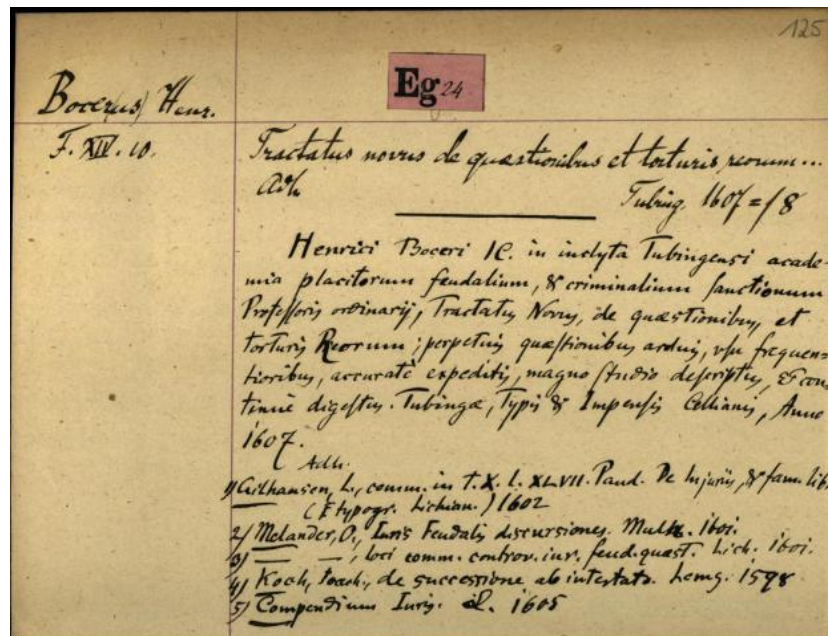 125
Eg 24
Bocer(us) Henr.
F. XIV. 10.
Tractatus novus de quaestionibus et torturis reorum...
Adh. Tubing. 1607 = 8
Henrici Boceri IC. in inclyta Tubingensi acade-
mia placitorum feudalium, & criminalium sanctionum
Professoris ordinarij, Tractatus Novus, de quaestionibus, et
torturis Reorum; perpetuis quaestionibus arduis, vsu frequen=
tioribus, accuratè expeditis, magno studio descriptus, & con
tinuè digestus. Tubingae, Typis & Impensis Cellianis, Anno
1607.
Adh.
1) Gilhausen, L., comm. in T. X. l. XLVII. Pand. De Injuriis, & fam. lib.
(E typogr. Lichian.) 1602
2) Melander, O., Iuris Feudalis discursiones. 1601.
3) — —, loci comm. controv. iur. feud. quaest. Lich. 1601.
4) Koch, Joach., de successione ab intestato. Lemg. 1598
5) Compendium Iuris. 1605